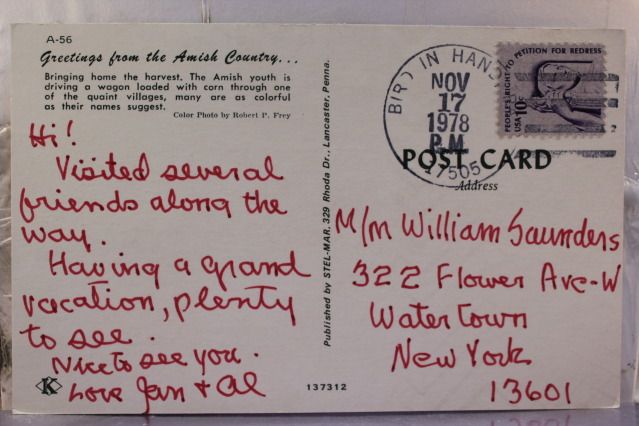 A-56
Greetings from the Amish Country...
Bringing home the harvest. The Amish youth is
driving a wagon loaded with corn through one
of the quaint villages, many are as colorful
as their names suggest.
Color Photo by Robert P. Frey
Hi!
Visited several
friends along the
way.
Having a grand
vacation, plenty
to see.
Nice to see you.
Love Jan + Al
K
Published by STEL-MAR, 329 Rhoda Dr., Lancaster, Penna.
137312
BIRD IN HAND
NOV
17
1978
P.M
17505
PETITION FOR REDRESS
PEOPLE'S RIGHT TO
USA 10c
POST CARD
Address
M/m William Saunders
322 Flower Ave-W
Watertown
New York
13601